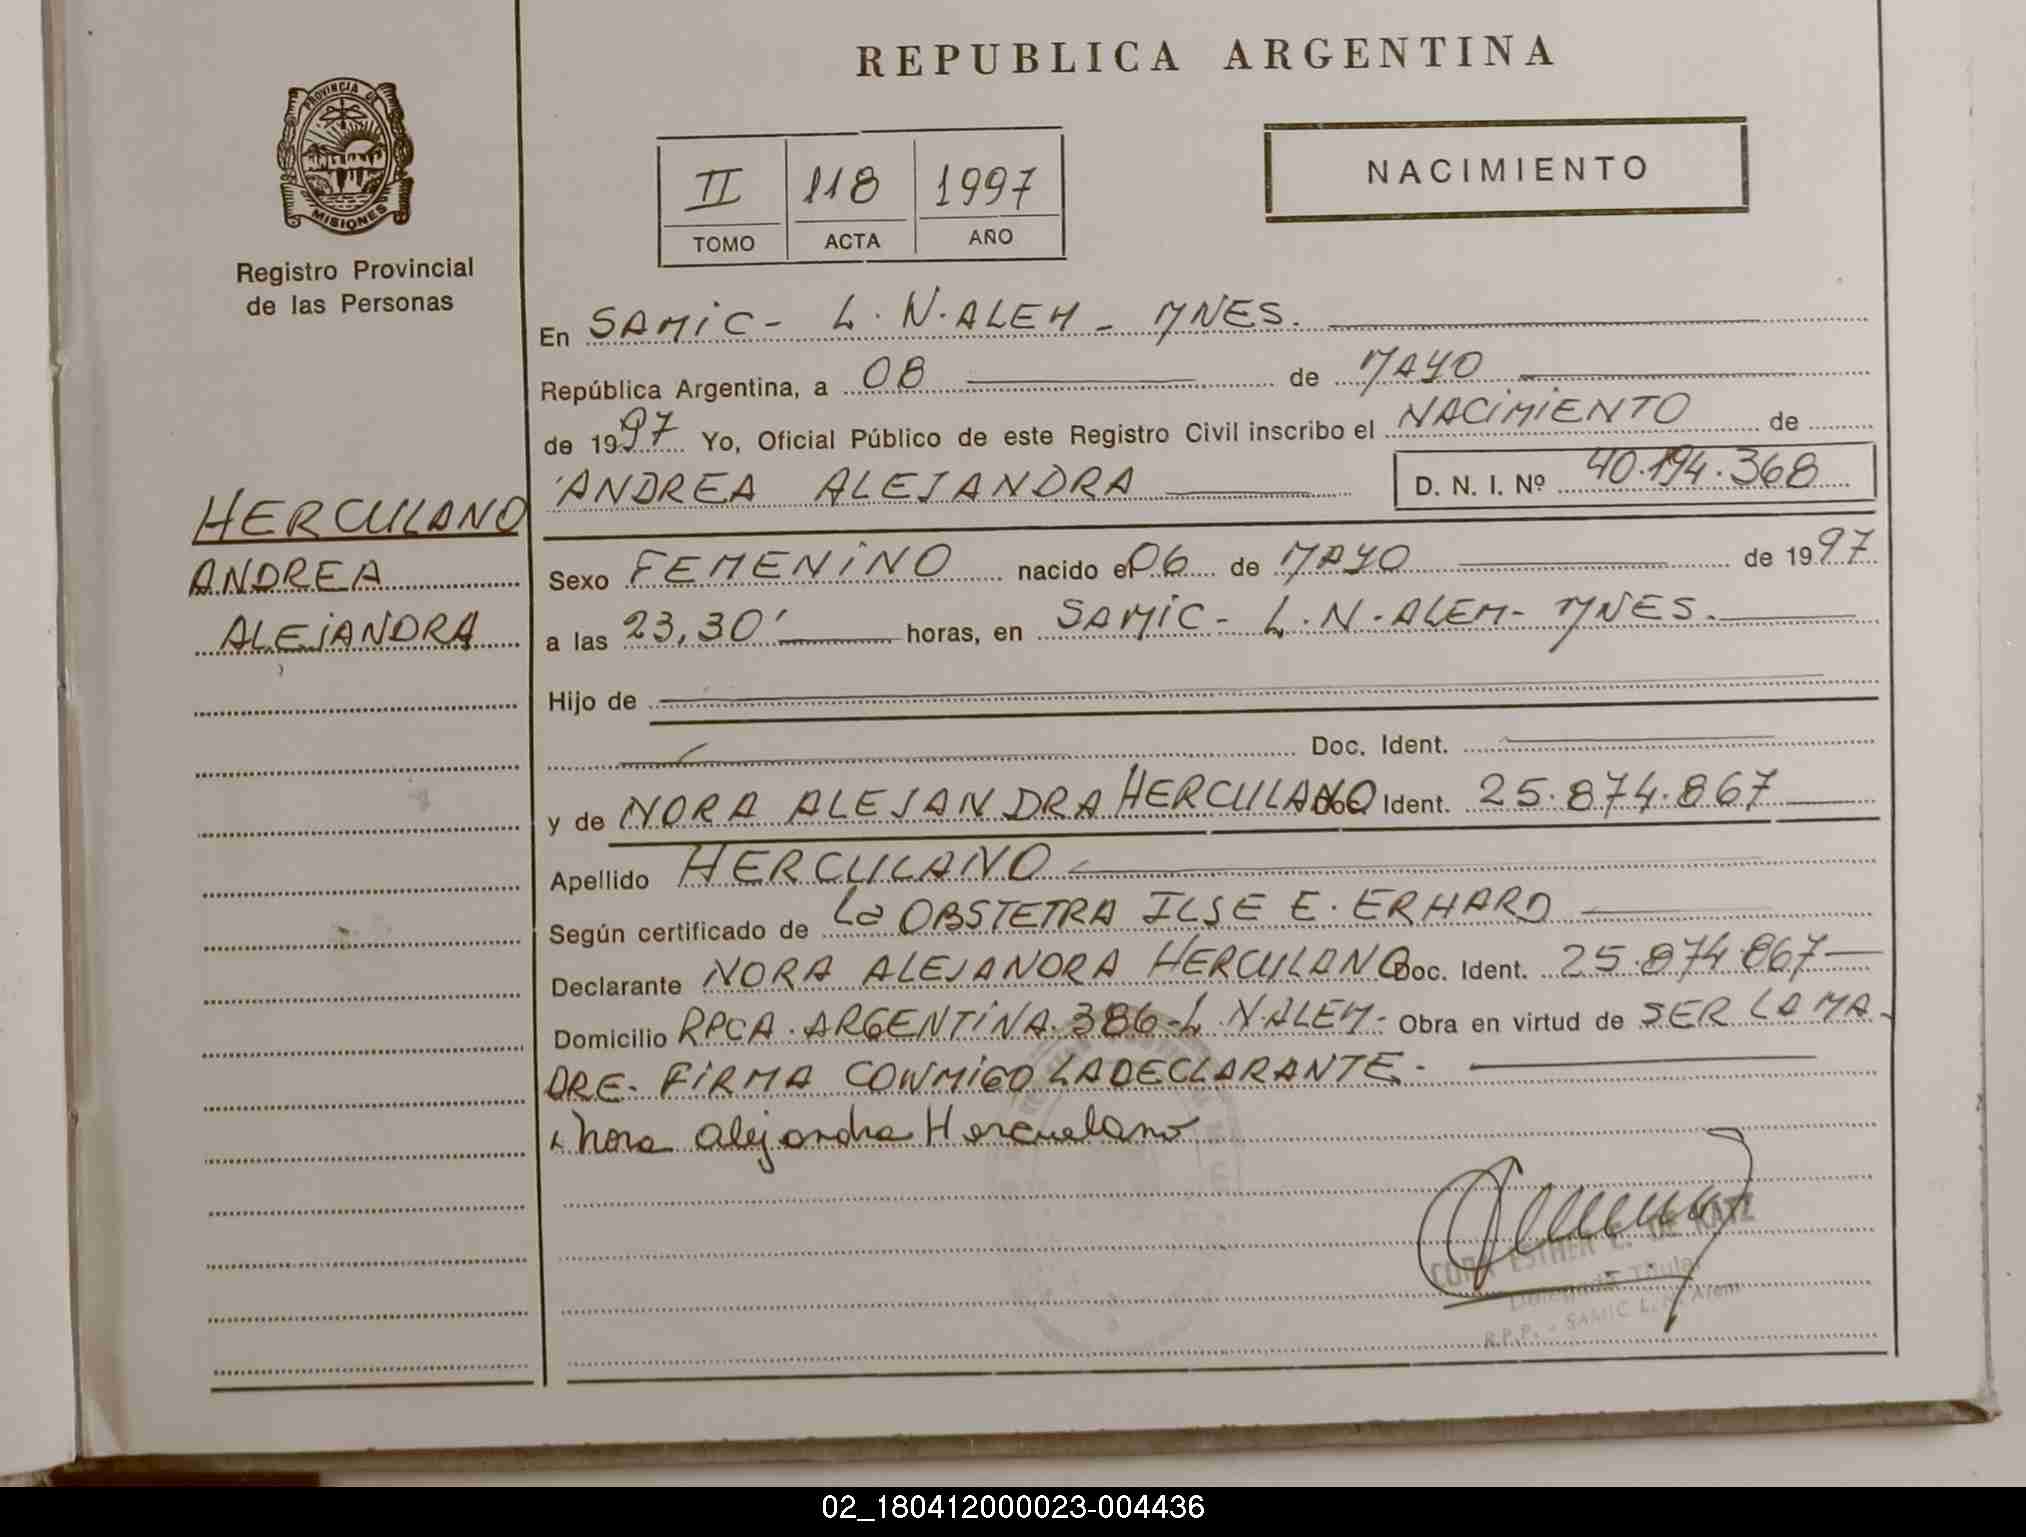 REPUBLICA ARGENTINA
PROVINCIA DE
MISIONES
Registro Provincial
de las Personas
II 118 1997
TOMO ACTA AÑO
NACIMIENTO
En SAMIC - L. N. ALEM - MNES.
República Argentina, a 08 de MAYO
de 1997 Yo, Oficial Público de este Registro Civil inscribo el NACIMIENTO de
ANDREA ALEJANDRA D. N. I. Nº 40.194.368
HERCULANO
ANDREA
ALEJANDRA
Sexo FEMENINO nacido el 06 de MAYO de 1997
a las 23,30' horas, en SAMIC - L. N. ALEM - MNES.
Hijo de
Doc. Ident.
y de NORA ALEJANDRA HERCULANO Doc. Ident. 25.874.867
Apellido HERCULANO
Según certificado de La OBSTETRA ILSE E. ERHARD
Declarante NORA ALEJANDRA HERCULANO Doc. Ident. 25.874.867
Domicilio RPCA. ARGENTINA. 386 - L. N. ALEM - Obra en virtud de SER LA MA-
DRE. FIRMA CONMIGO LA DECLARANTE.
Nora Alejandra Herculano
ESTHER DE KATZ
Delegada Titular
R.P.P. - SAMIC L. N. Alem
02_180412000023-004436